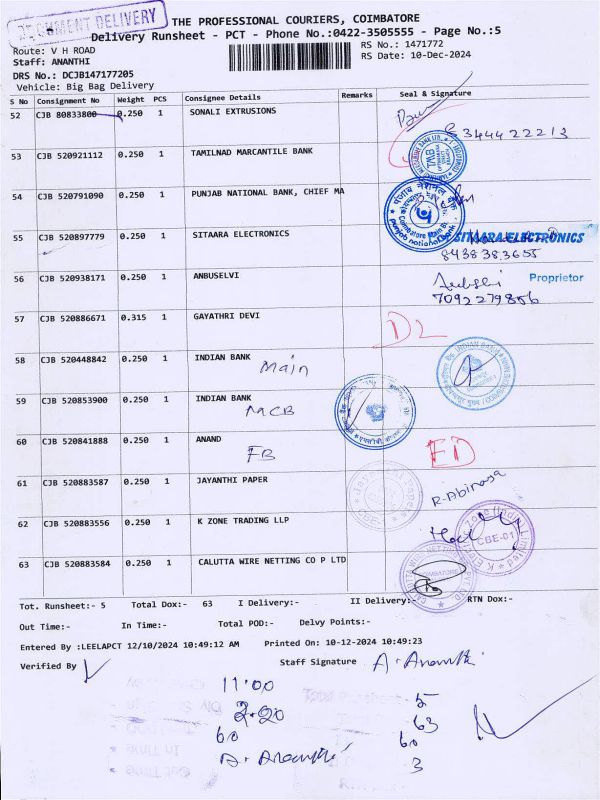 DOCUMENT DELIVERY
THE PROFESSIONAL COURIERS, COIMBATORE
Delivery Runsheet - PCT - Phone No.:0422-3505555 - Page No.:5
Route: V H ROAD
RS No.: 1471772
Staff: ANANTHI
RS Date: 10-Dec-2024
DRS No.: DCJB147177205
Vehicle: Big Bag Delivery
S No Consignment No Weight PCS Consignee Details Remarks Seal & Signature
52 CJB 80833800 0.250 1 SONALI EXTRUSIONS
6344422213
53 CJB 520921112 0.250 1 TAMILNAD MARCANTILE BANK
TMB
54 CJB 520791090 0.250 1 PUNJAB NATIONAL BANK, CHIEF MA
पंजाब नैशनल बैंक
Coimbatore Main
punjab national bank
55 CJB 520897779 0.250 1 SITAARA ELECTRONICS
SITAARA ELECTRONICS
8438383655
Proprietor
56 CJB 520938171 0.250 1 ANBUSELVI
7092279856
57 CJB 520886671 0.315 1 GAYATHRI DEVI
DL
58 CJB 520448842 0.250 1 INDIAN BANK
Main
INDIAN BANK
59 CJB 520853900 0.250 1 INDIAN BANK
MCB
60 CJB 520841888 0.250 1 ANAND
FB
ED
61 CJB 520883587 0.250 1 JAYANTHI PAPER
R. Abinaya
62 CJB 520883556 0.250 1 K ZONE TRADING LLP
CBE-01
63 CJB 520883584 0.250 1 CALUTTA WIRE NETTING CO P LTD
COIMBATORE
Tot. Runsheet:- 5 Total Dox:- 63 I Delivery:- II Delivery:- RTN Dox:-
Out Time:- In Time:- Total POD:- Delvy Points:-
Entered By :LEELAPCT 12/10/2024 10:49:12 AM Printed On: 10-12-2024 10:49:23
Verified By Staff Signature A. Ananthi
11:00 5
2.20 63
60 60
A. Ananthi 3